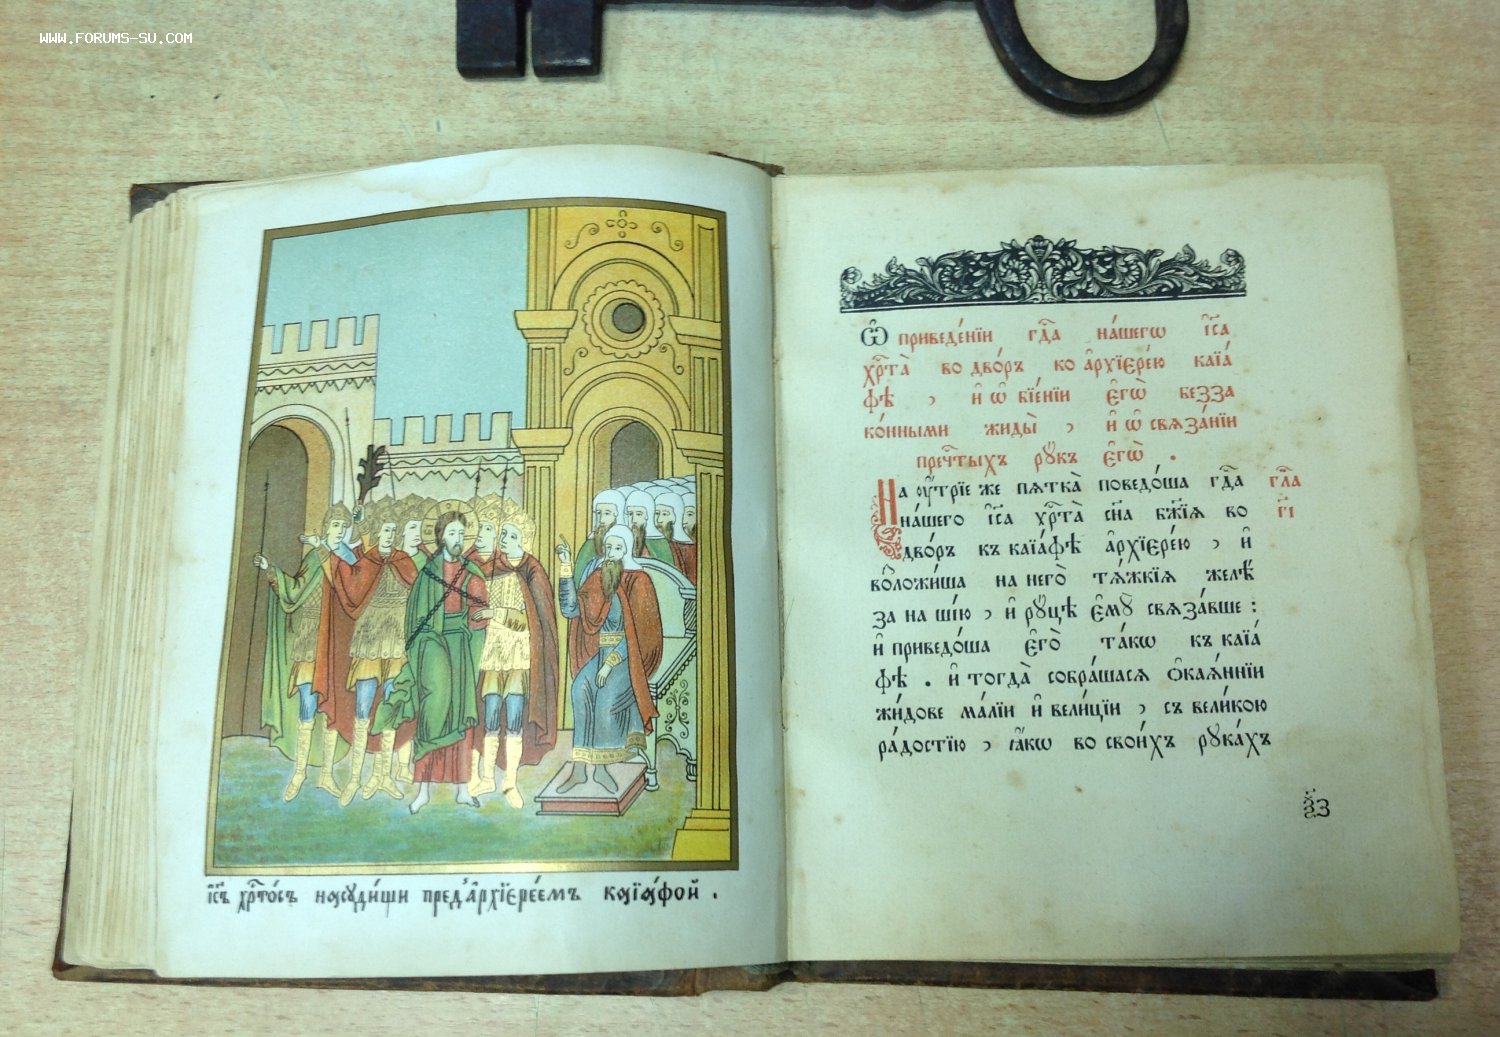 WWW.FORUMS-SU.COM
і҆с҃ъ хрⷭ҇то́съ насꙋди́щи пред̾а҆рхїере́емъ каїа́фой .
Ѡ҆ приведе́нїи гдⷭ҇а на́шегѡ і҆с҃а
хрⷭ҇та̀ во дво́ръ ко а҆рхїере́ю каїа́
фѣ , и҆ ѡ҆ бїе́нїи є҆гѡ̀ безза
ко́нными жиды̀ , и҆ ѡ҆ свѧза́нїи
пречⷭ҇тыхъ рꙋкъ є҆гѡ̀ .
На ᲂу҆́трїе же пѧтка̀ поведо́ша гдⷭ҇а гла҃
на́шего і҆с҃а хрⷭ҇та̀ сн҃а бж҃їѧ во г҃і
дво́ръ къ каїа́фѣ а҆рхїере́ю , и҆
воложи́ша на него̀ тѧ́жкїѧ желѣ́
за на ши́ю , и҆ рꙋцѣ є҆мꙋ̀ свѧза́вше :
и҆ приведо́ша є҆го̀ та́кѡ къ каїа́
фѣ . и҆ тогда̀ собра́шасѧ ѻ҆каѧ́ннїи
жи́дове ма́лїи и҆ вели́цїи , съ вели́кою
ра́достїю , ꙗ҆́кѡ во свои́хъ рꙋка́хъ